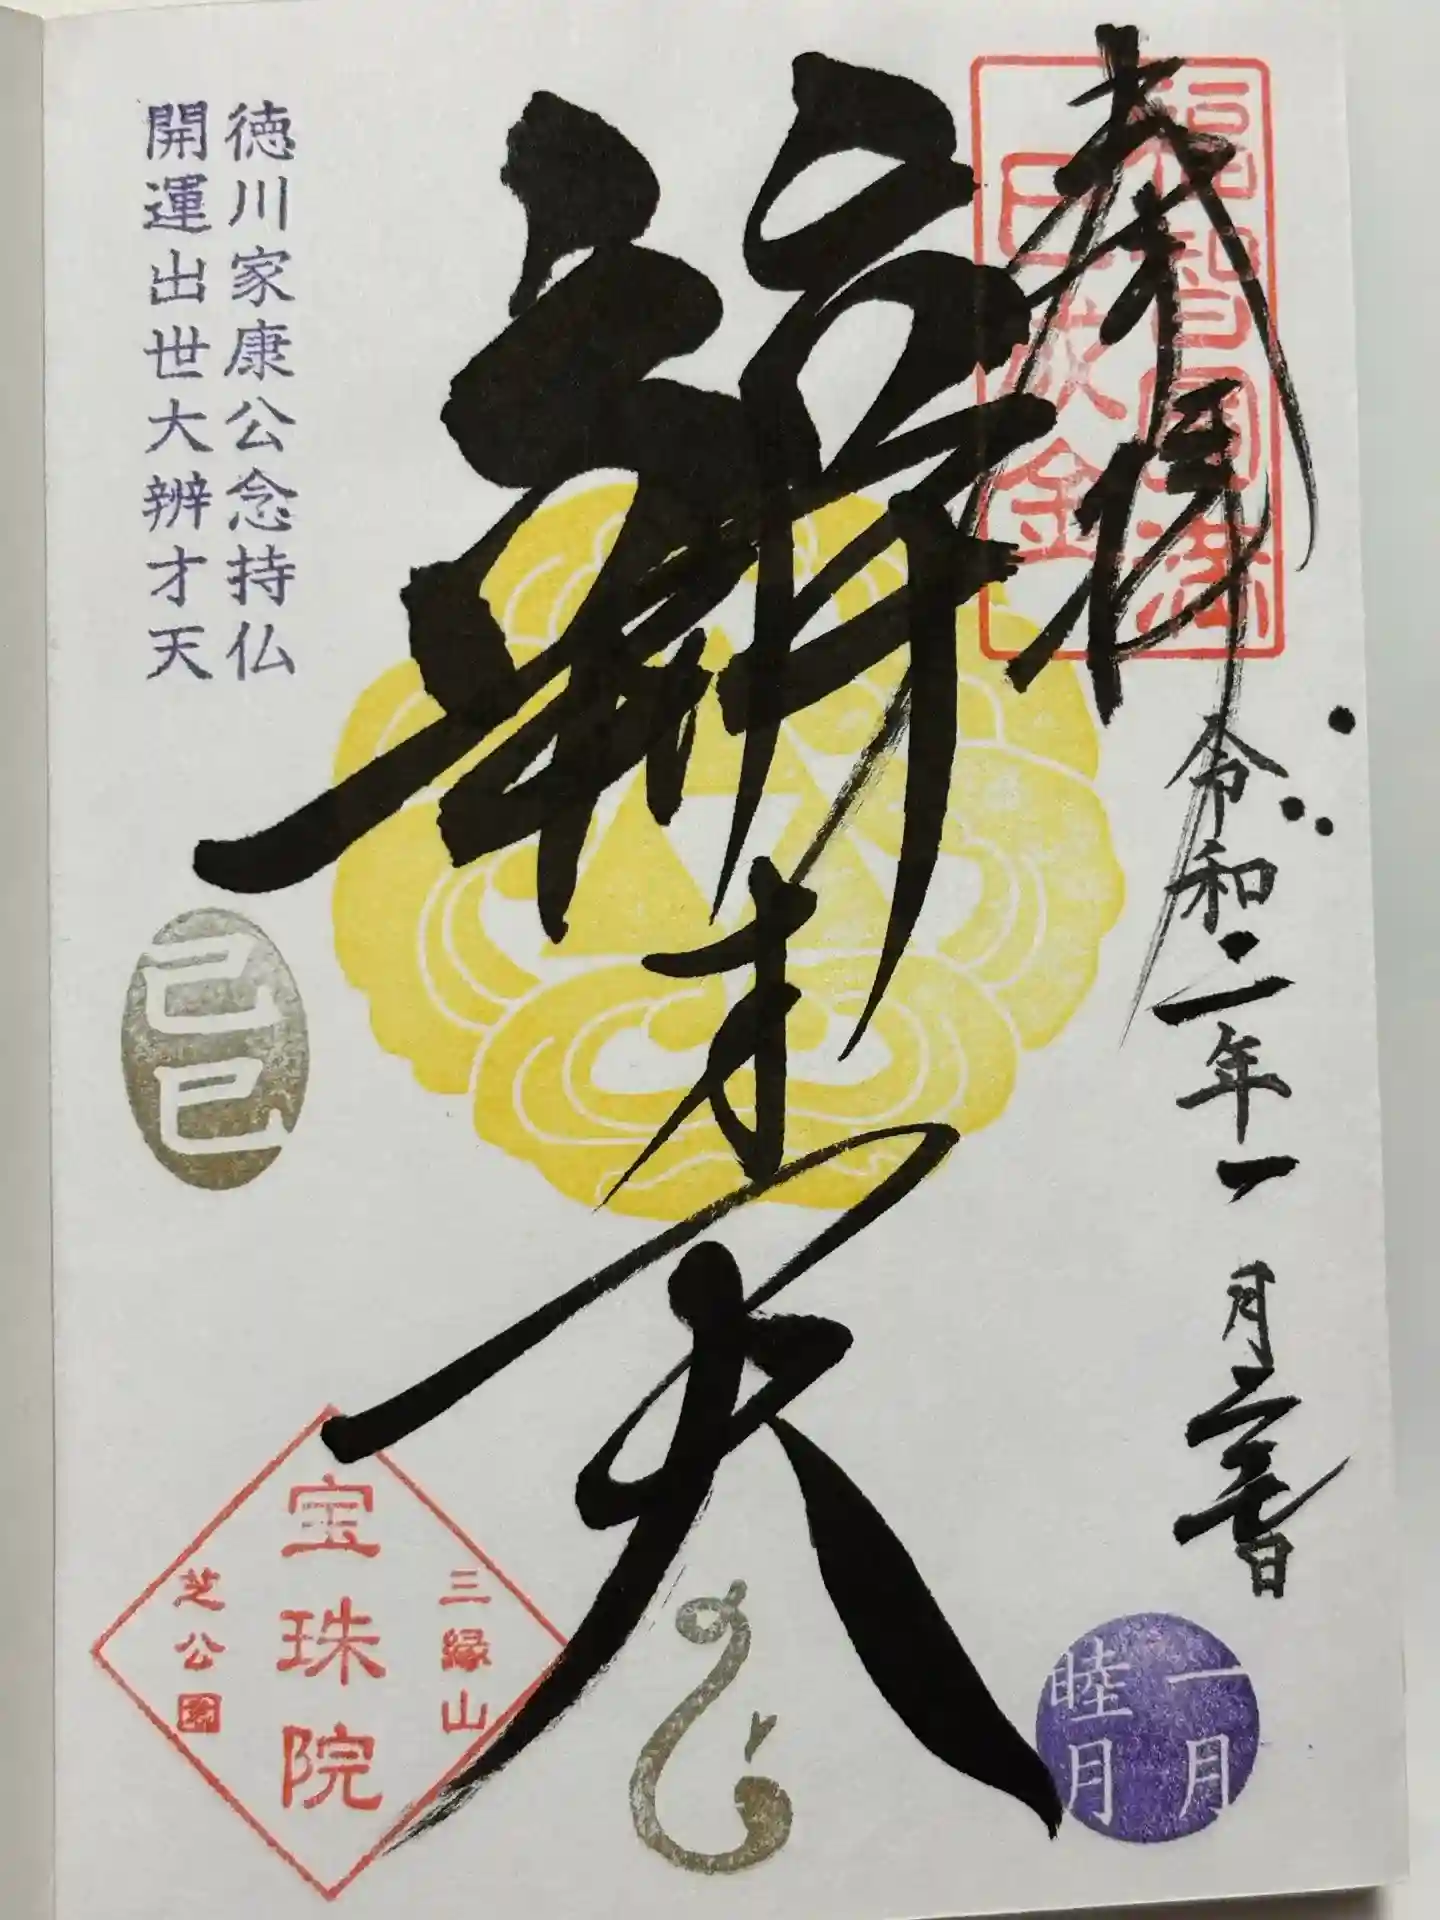 奉拝
福智圓満
巳成金
令和二年一月二十七日
一月
睦月
辨才天
徳川家康公念持仏
開運出世大辨才天
己巳
三縁山
宝珠院
芝公園